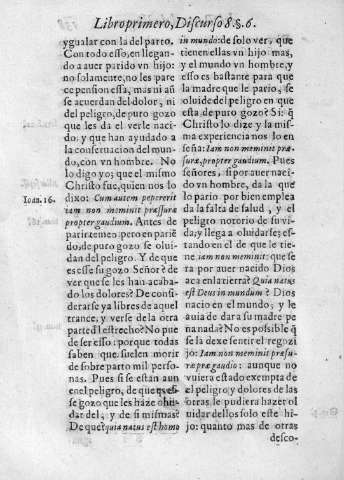 Libro primero, Discurso 8. §. 6.
y gualar con la del parto.
Con todo esso, en llegan-
do a auer parido vn hijo:
no solamente, no les pare
ce pension essa, mas ni aũ
se acuerdan del dolor, ni
del peligro, de puro gozo
que les da el verle naci-
do: y que han ayudado a
la conseruacion del mun-
do, con vn hombre. No
lo digo yo; que el mismo
Christo fue, quien nos lo
dixo: Cum autem pepererit
iam non meminit præssuræ
propter gaudium. Antes de
partir temen: pero en pariẽ
do, de puro gozo se olui-
dan del peligro. Y de que
es esse su gozo Señor? de
ver que se les han acaba-
do los dolores? De consi-
derarse ya libres de aquel
trance, y verse de la otra
parte dl estrecho? No pue
de ser esso: porque todas
saben que suelen morir
de sobreparto mil perso-
nas. Pues si se están aun
en el peligro, de que es es-
se gozo que les haze olui-
dar del, y de si mismas?
De que? quia natus est homo
Ioan. 16.
in mundo: de solo ver, que
tienen ellas vn hijo mas,
y el mundo vn hombre, y
esso es bastante para que
la madre que le pario, se
oluide del peligro en que
esta de puro gozo? Si: q̃
Christo lo dize y la mis-
ma experiencia nos lo en
seña: Iam non meminit præ-
suræ, propter gaudium. Pues
señores, si por auer naci-
do vn hombre, da la que
lo pario por bien emplea
da la falta de salud, y el
peligro notorio de su vi-
da, y llega a oluidarse; es-
tando en el de que le tie-
ne, iam non meminit: que se
ra por auer nacido Dios
aca en la tierra? Quia natus
est Deus in mundum? Dios
nacio en el mundo; y le
auia de dar a su madre pe
na nada? No es posible q̃
se la dexe sentir el regozi
jo: Iam non meminit præsu-
ræ præ gaudio: aunque no
vuiera estado exempta de
el peligro, y dolores de las
otras, le pudiera hazer ol
uidar dellos solo este hi-
jo: quanto mas de otras
desco-